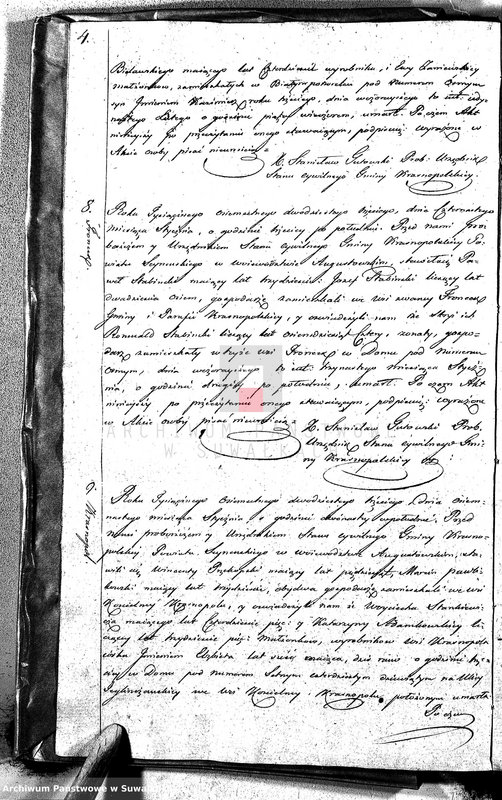 4.
Bielawskiego maiącego lat Czterdzieści wyrobnika, i Ewy
małżonków, zamieszkałych w pod Numerem
roku bieżącego, dnia wczorayszego to iest
Lutego o godzinie piątey wieczorem, umarł. Po czem Akt
ninieyszy po przeczytaniu onego stawaiącym, podpisany wyrażone w
Akcie osoby pisać nieumieią.
X. Stanisław Gutowski Prob. Urzędnik
Stanu Cywilnego Gminy Krasnopolskiey.
Roku Tysiącznego ośmsetnego dwudziestego trzeciego, dnia Czternastego
miesiąca Stycznia, o godzinie trzeciey po południu. Przed nami pro-
boszczem y Urzędnikiem Stanu cywilnego Gminy Krasnopolskiey Po-
wiatu Seynenskiego w woiewództwie Augustowskim, stawili się Pa-
weł Stabinski maiący lat trzydzieści: Jozef Stabinski liczący lat
dwadzieścia ośm, gospodarze zamieszkali we wsi zwaney Fronczki
Gminy i Parafii Krasnopolskiey, y oświadczyli nam że Stryi ich
Romuald Stabinski liczący lat ośmdziesiąt Cztery, żonaty, gospo-
darz zamieszkały w teyże wsi Fronczki w Domu pod numerem
ósmym, dnia wczorayszego to iest: trzynastego miesiąca Stycz-
nia, o godzinie drugiey po południu, umarł. Po czem Akt
ninieyszy po przeczytaniu onego stawaiącym, podpisany wyrażone
w Akcie osoby pisać nieumieią.
X. Stanisław Gutowski Prob.
Urzędnik Stanu cywilnego Gmi-
ny Krasnopolskiey
6. Krasnopol
Roku Tysiącznego ośmsetnego dwudziestego trzeciego, dnia ośm-
nastego miesiąca Stycznia o godzinie dwunastey w południe, Przed
nami proboszczem y Urzędnikiem Stanu cywilnego Gminy Krasno-
polskiey, Powiatu Seynenskiego w woiewództwie Augustowskim, sta-
wili się Wincenty maiący lat pięćdziesiąt, Marcin
maiący lat trzydzieści, obydwa gospodarze zamieszkali we wsi
Kościelney Krasnopolu, y oświadczyli nam iż Woyciecha Stankiewi-
cza maiącego lat Czterdzieści pięć: y Katarzyny li-
czącey lat trzydzieści pięć: Małżonków, wyrobników wsi Krasnopola
córka Imieniem Elżbieta lat sześć maiąca, dziś rano o godzinie trze-
ciey w Domu pod numerem Setnym czterdziestym dziewiątym na Ulicy
we wsi Kościelney Krasnopolu położonym umarła
Po czem
ARCHIWUM
W SUWAŁKACH
Archiwum Państwowe w Suwałkach